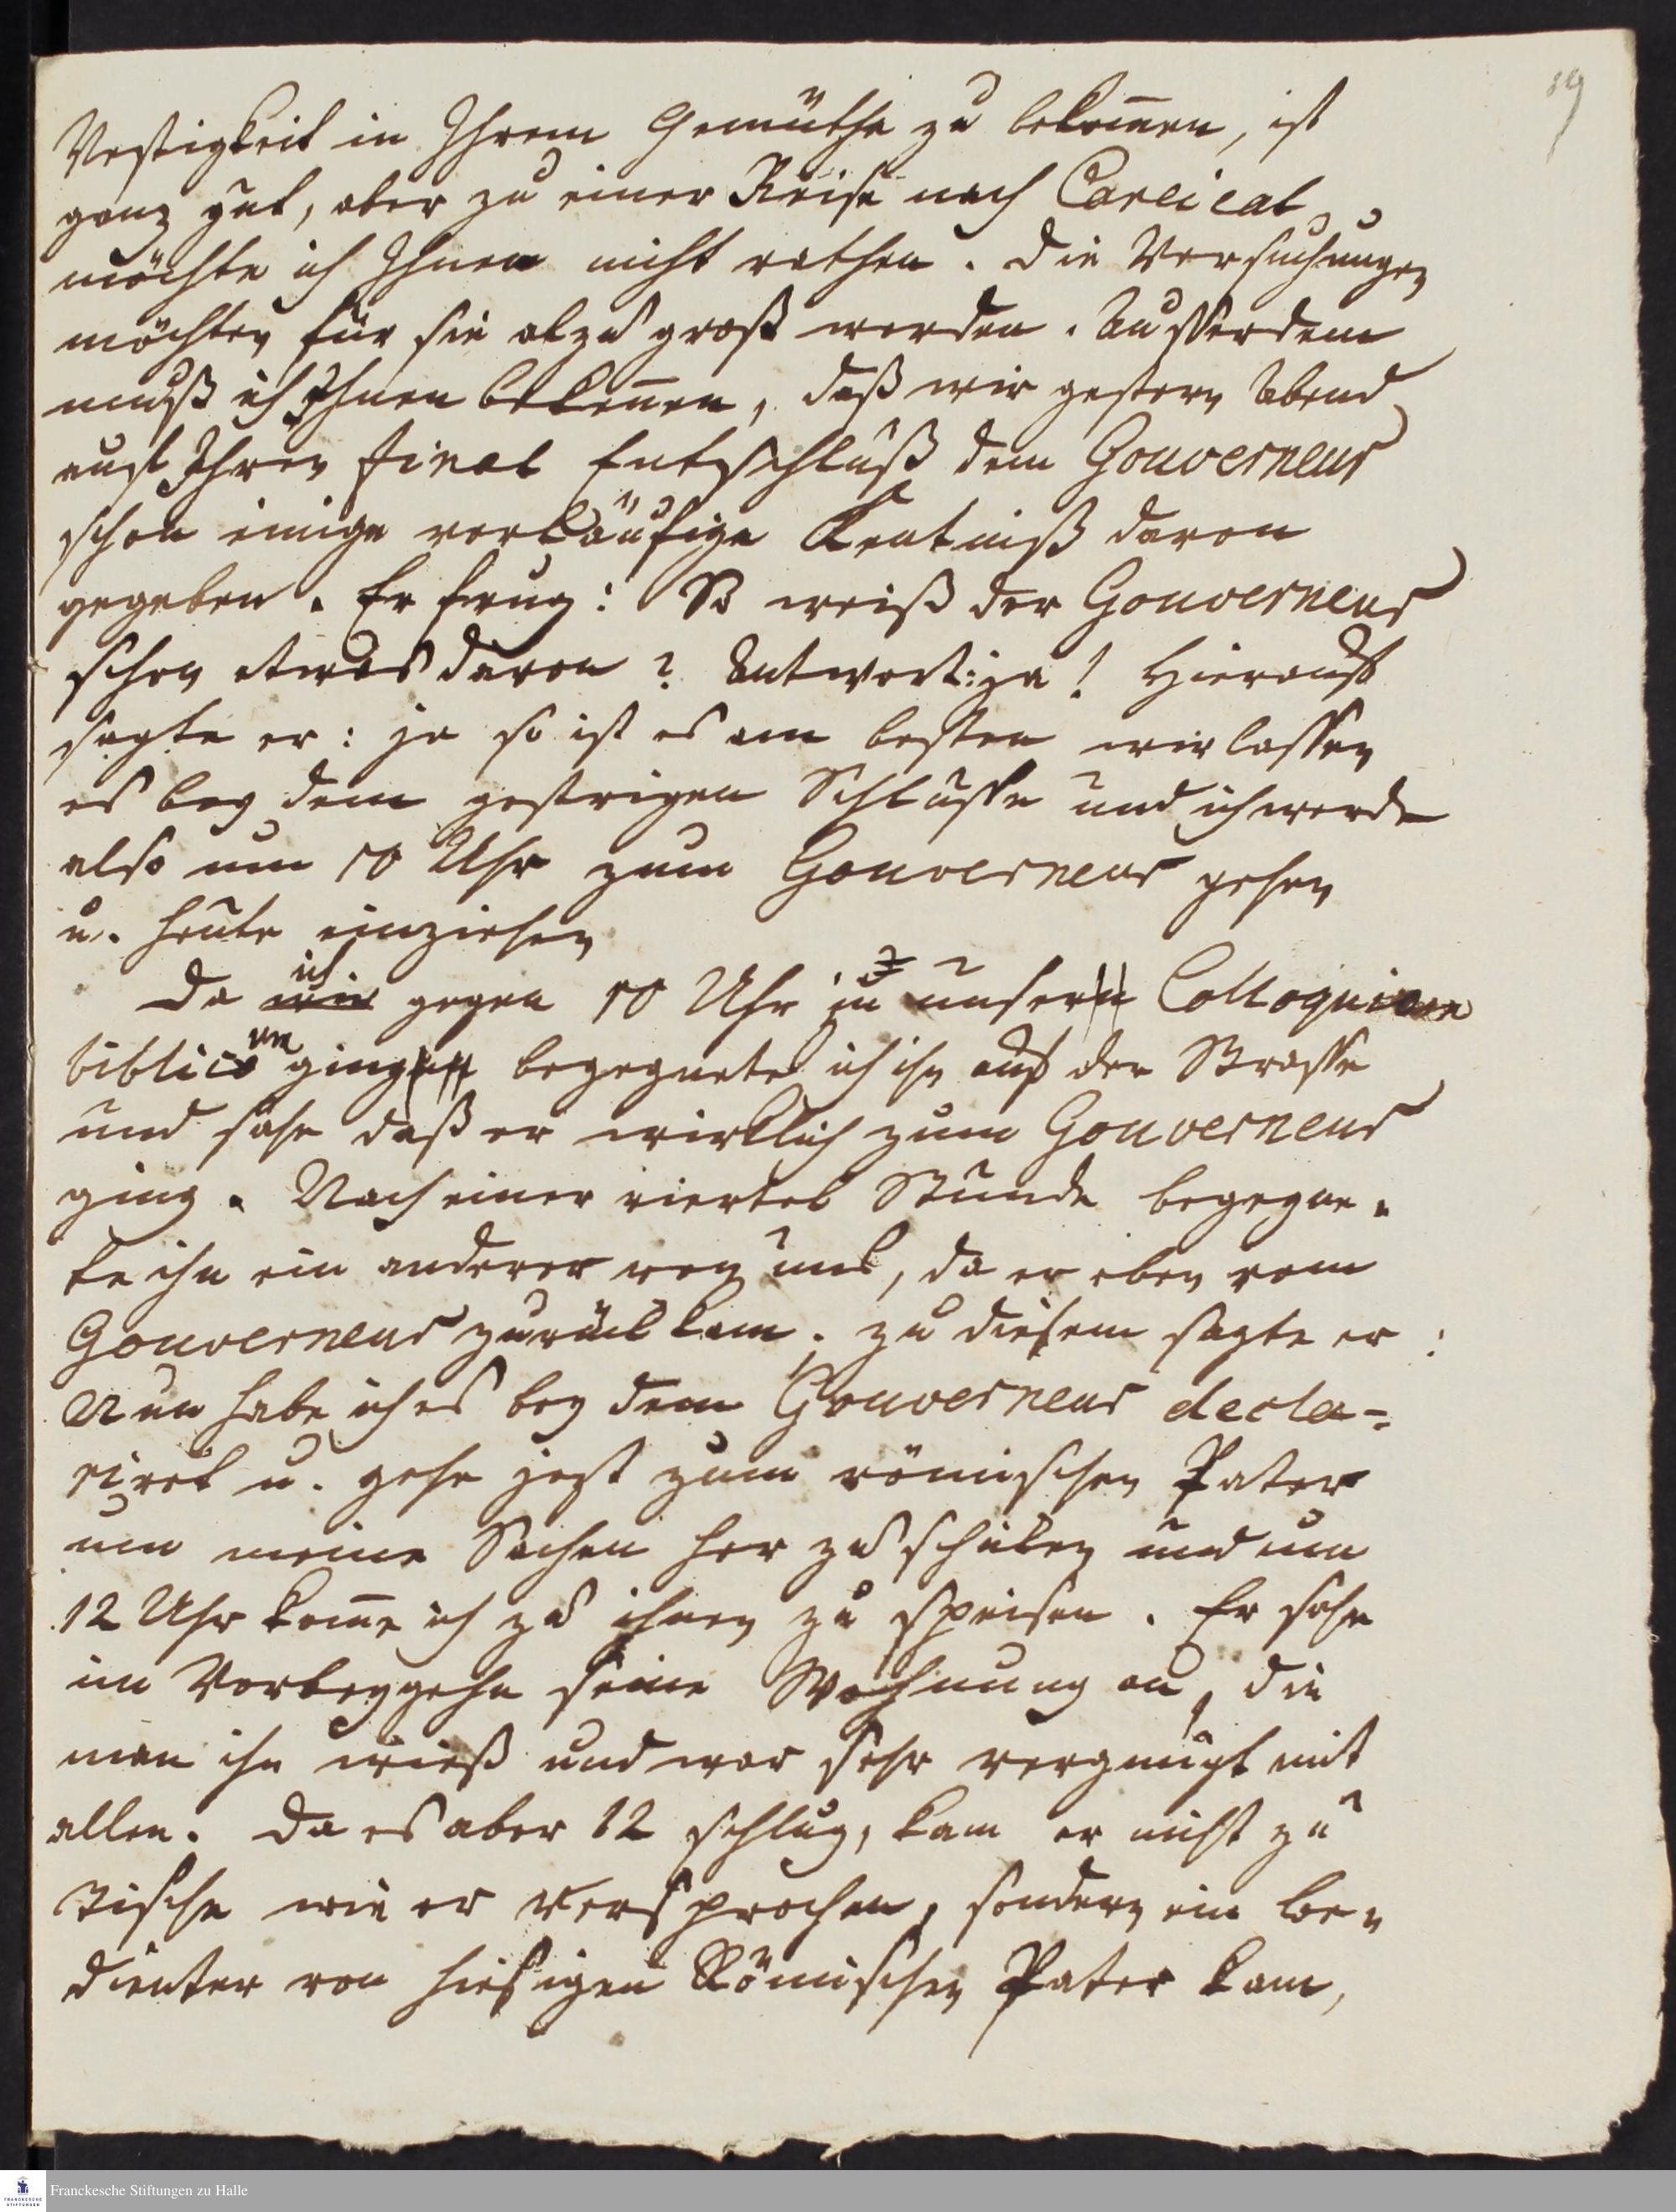 19
Vestigkeit in Ihrem Gemüthe zu bekom̄en, ist
ganz gut, aber zu einer Reise nach Careical
möchte ich Ihnen nicht rathen. Die Versuchungen
möchten für sie alzu groß werden. Ausserdem
muß ich Ihnen bekennen, daß wir gestern Abend
auf Ihren final Entschluß dem Gouverneur
schon einige vorläufige Kentniß davon
gegeben. Er frug: So weiß der Gouverneur
schon etwas davon? Antwort: ja! Hierauf
sagte er: ja so ist es am besten wir lassen
es bey dem gestrigen Schlusse und ich werde
also um 10 Uhr zum Gouverneur gehen
u. heute einziehen
Da ich gegen 10 Uhr zu unserm Colloquium
biblicum ging begegnete ich ihn auf der Strasse
und sahe daß er wirklich zum Gouverneur
ging. Nach einer viertel Stunde begegne-
te ihn ein anderer von uns, da er eben vom
Gouverneur zurück kam. zu diesem sagte er:
Nun habe ich es bey dem Gouverneur decla-
riret u. gehe jezt zum römischen Pater
um meine Sachen her zu schicken und um
12 Uhr kom̄e ich zu ihnen zu speisen. Er sahe
im Vorbeygehn seine Wohnung an, die
man ihn wieß und war sehr vergnügt mit
allen. Da es aber 12 schlug, kam er nicht zu
Tische wie er versprochen, sondern ein be-
dienter von hiesigen Römischen Pater kam,
Franckesche Stiftungen zu Halle